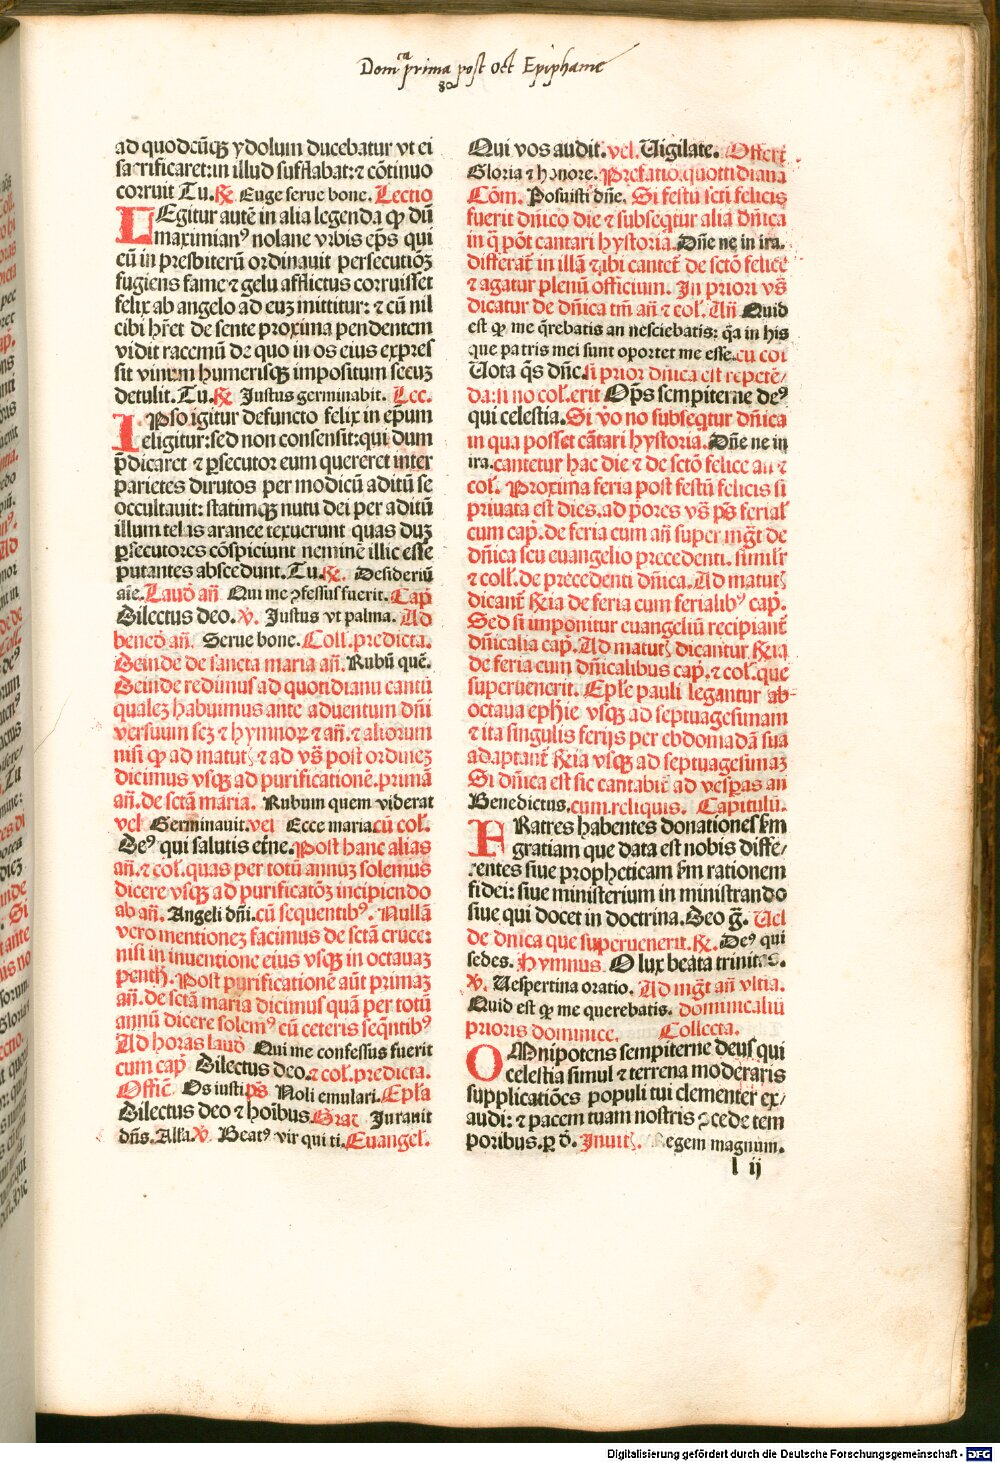 Dom^ca prima post oct Epiphanie
80
ad quodcūqꝫ ydolum ducebatur vt ei
sacrificaret: in illud sufflabat: ⁊ cōtinuo
corruit Tu. ℟. Euge serue bone. Lectio
LEgitur autē in alia legenda ꝙ dū
maximianꝰ nolane vrbis ep̄s qui
eū in presbiterū ordinauit persecutiōꝫ
fugiens fame ⁊ gelu afflictus corruisset
felix ab angelo ad euꝫ mittitur: ⁊ cū nil
cibi hr̄et de sente proxima pendentem
vidit racemū de quo in os eius expres
sit vinum humerisqꝫ impositum secuꝫ
detulit. Tu. ℟ Justus germinabit. Lec.
IPso igitur defuncto felix in ep̄um
eligitur: sed non consensit: qui dum
p̄dicaret ⁊ ꝑsecutor eum quereret inter
parietes dirutos per modicū aditū se
occultauit: statimqꝫ nutu dei per aditū
illum telas aranee texuerunt quas duꝫ
ꝑsecutores cōspiciunt neminē illic esse
putantes abscedunt. Tu. ℟. Desideriū
aīe. Laud̄ an̄ Qui me ꝯfessus fuerit. Cap̄
Dilectus deo. ℣. Justus vt palma. Ad
bened̄ an̄. Serue bone. Coll. predicta.
Deinde de sancta maria an̄. Rubū quē.
Deinde redimus ad quotidianū cantū
qualeꝫ habuimus ante aduentum dn̄i
versuum scꝫ ⁊ hymnoꝝ ⁊ an̄. ⁊ aliorum
nisi ꝙ ad matut̄ ⁊ ad vs̄ post ordineꝫ
dicimus vsqꝫ ad purificationē. primā
an̄. de sctā maria. Rubum quem viderat
vel Germinauit. vel Ecce maria cū col̄.
Deꝰ qui salutis etn̄e. Post hanc alias
an̄. ⁊ col̄. quas per totū annuꝫ solemus
dicere vsqꝫ ad purificatōeꝫ incipiendo
ab an̄. Angeli dn̄i. cū sequentibꝰ. Nullā
vero mentioneꝫ facimus de sctā cruce:
nisi in inuentione eius vsqꝫ in octauaꝫ
penth̄. Post purificationē aūt primaꝫ
an̄. de sctā maria dicimus quā per totū
annū dicere solemꝰ cū ceteris seq̄ntibꝰ
Ad horas laud̄ Qui me confessus fuerit
cum cap̄ Dilectus deo. ⁊ col̄. predicta.
Officī̄ Os iusti ps̄ Noli emulari. Ep̄la
Dilectus deo ⁊ hoībus. Grad̄ Jurauit
dn̄s. Alla. ℣. Beatꝰ vir qui ti. Euangel̄.
Qui vos audit. vel. Uigilate. Offert̄
Gloria ⁊ honore. Prefatio. quotidiana
Cōm̄. Posuisti dn̄e. Si festū scti felicis
fuerit dn̄ico die ⁊ subseqtur alia dn̄ica
in q̄ pōt cantari hystoria. Dn̄e ne in ira.
differat̄ in illā ⁊ ibi cantet̄ de sctō felice
⁊ agatur plenū officium. In priori vs̄
dicatur de dn̄ica tm̄ an̄ ⁊ col̄. An̄ Quid
est ꝙ me q̄rebatis an nesciebatis: q̄a in his
que patris mei sunt oportet me esse. cū col̄
Uota q̄s dn̄e. si prior dn̄ica est repete/
da: si nō col̄. erit Op̄s sempiterne deꝰ
qui celestia. Si v̄o no subseqtur dn̄ica
in qua posset cātari hystoria. Dn̄e ne in
ira. cantetur hac die ⁊ de sctō felice an̄ ⁊
col̄. Proxima feria post festū felicis si
priuata est dies. ad p̄ores vs̄ ps̄ ferial̄
cum cap̄. de feria cum an̄ super mgt̄ de
dn̄ica seu euangelio precedenti. similr̄
⁊ coll̄. de precedenti dn̄ica. Ad matut̄
dicant̄ ℟ia de feria cum ferialibꝰ cap̄.
Sed si imponitur euangeliū recipiant̄
dn̄icalia cap̄. Ad matut̄ dicantur ℟ia
de feria cum dn̄icalibus cap̄. ⁊ col̄. que
superuenerit. Ep̄le pauli legantur ab
octaua ep̄hie vsqꝫ ad septuagesimam
⁊ ita singulis ferijs per ebdomadā sua
adaptant̄ ℟ia vsqꝫ ad septuagesimaꝫ
Si dn̄ica est sic cantabit̄ ad vesꝑas an̄
Benedictus. cum. reliquis. Capitulū.
FRatres habentes donationes ẜm
gratiam que data est nobis diffe/
rentes siue propheticam ẜm rationem
fidei: siue ministerium in ministrando
siue qui docet in doctrina. Deo gr̄. Uel
de dnica que superuenerit. ℟. Deꝰ qui
sedes. Hymnus. O lux beata trinitas.
℣. Uespertina oratio. Ad mgt̄ an̄ vltia.
Quid est ꝙ me querebatis. dominicaliū
prioris dominice. Collecta.
OMnipotens sempiterne deus qui
celestia simul ⁊ terrena moderaris
supplicatiōes populi tui clementer ex/
audi: ⁊ pacem tuam nostris ꝯcede tem
poribus. ꝑ d̄. Inuit̄. Regem magnum.
l ij
Digitalisierung gefördert durch die Deutsche Forschungsgemeinschaft - DFG